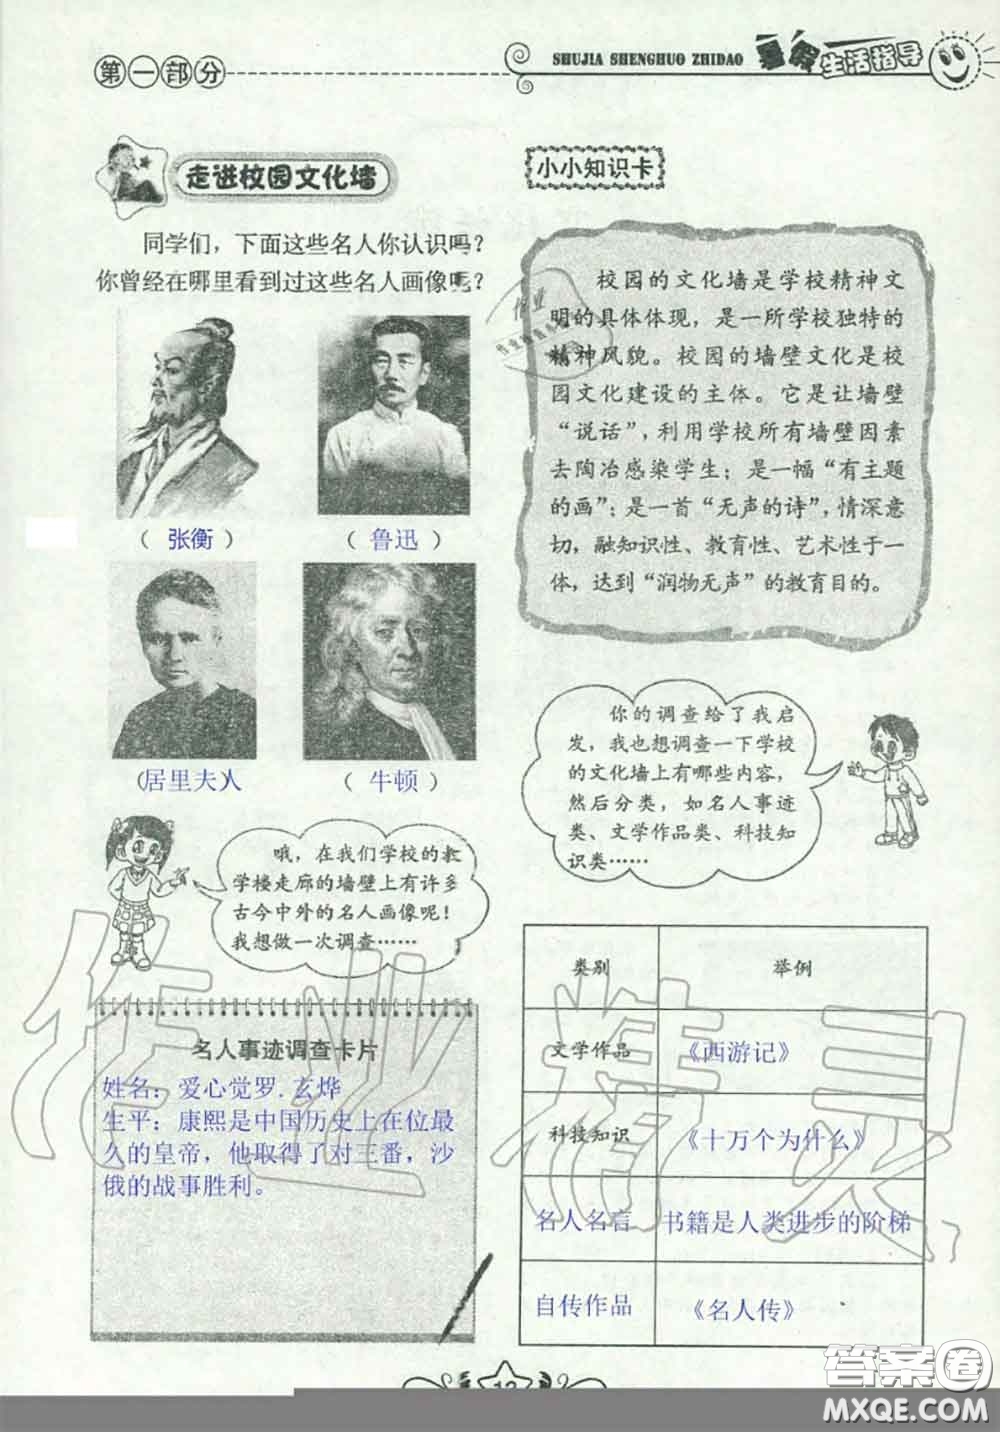 第一部分
SHUJIA SHENGHUO ZHIDAO
暑假生活指导
走进校园文化墙
同学们，下面这些名人你认识吗？
你曾经在哪里看到过这些名人画像呢？
（ 张衡 ）
（ 鲁迅 ）
（居里夫人）
（ 牛顿 ）
哦，在我们学校的教
学楼走廊的墙壁上有许多
古今中外的名人画像呢！
我想做一次调查……
名人事迹调查卡片
姓名：爱心觉罗.玄烨
生平：康熙是中国历史上在位最
久的皇帝，他取得了对三番，沙
俄的战事胜利。
小小知识卡
校园的文化墙是学校精神文
明的具体体现，是一所学校独特的
精神风貌。校园的墙壁文化是校
园文化建设的主体。它是让墙壁
“说话”，利用学校所有墙壁因素
去陶冶感染学生；是一幅“有主题
的画”；是一首“无声的诗”，情深意
切，融知识性、教育性、艺术性于一
体，达到“润物无声”的教育目的。
你的调查给了我启
发，我也想调查一下学校
的文化墙上有哪些内容，
然后分类，如名人事迹
类、文学作品类、科技知
识类……
类别 举例
文学作品 《西游记》
科技知识 《十万个为什么》
名人名言 书籍是人类进步的阶梯
自传作品 《名人传》
作业精灵
答案卷
MXQE.COM